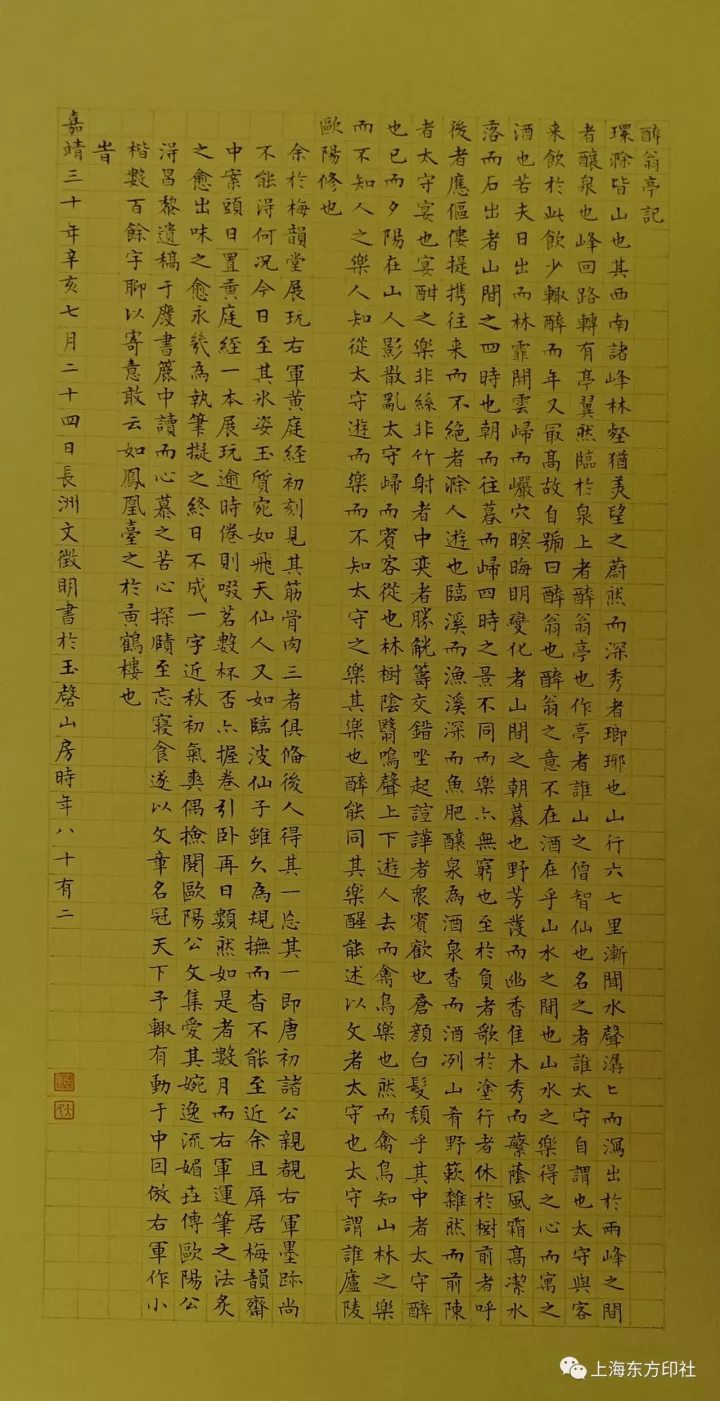 醉翁亭記
環滁皆山也其西南諸峰林壑猶美望之蔚然而深秀者瑯琊也山行六七里漸聞水聲潺〻而瀉出於兩峰之間
者釀泉也峰回路轉有亭翼然臨於泉上者醉翁亭也作亭者誰山之僧智仙也名之者誰太守自謂也太守與客
来飲於此飲少輒醉而年又最高故自號曰醉翁也醉翁之意不在酒在乎山水之間也山水之樂得之心而寓之
酒也若夫日出而林霏開雲歸而巖穴暝晦明變化者山間之朝暮也野芳發而幽香佳木秀而蘩蔭風霜高潔水
落而石出者山間之四時也朝而往暮而歸四時之景不同而樂亦無窮也至於負者歌於塗行者休於樹前者呼
後者應傴僂提携往来而不絕者滁人遊也臨溪而漁溪深而魚肥釀泉為酒泉香而酒冽山肴野蔌雜然而前陳
者太守宴也宴酣之樂非絲非竹射者中奕者勝觥籌交錯坐起諠譁者衆賓歡也蒼顏白髮頹乎其中者太守醉
也已而夕陽在山人影散亂太守歸而賓客從也林樹陰翳鳴聲上下遊人去而禽鳥樂也然而禽鳥知山林之樂
而不知人之樂人知從太守遊而樂而不知太守之樂其樂也醉能同其樂醒能述以文者太守也太守謂誰廬陵
歐陽修也
余於梅韻堂展玩右軍黄庭経初刻見其筋骨肉三者俱俻後人得其一忘其一即唐初諸公親覩右軍墨跡尚
不能得何况今日至其氷姿玉質宛如飛天仙人又如臨波仙子雖久為規撫而杳不能至近余且屏居梅韻齋
中案頭日置黄庭經一本展玩逾時倦則啜茗數杯否亦握卷引卧再日纇然如是者數月而右軍運筆之法炙
之愈出味之愈永㡬為執筆擬之終日不成一字近秋初氣爽偶撿閱歐陽公文集愛其婉逸流媚垚傳歐陽公
淂昌黎遺稿于廢書簏中讀而心慕之苦心探賾至忘寝食遂以文章名冠天下予輒有動于中回倣右軍作小
楷數百餘字聊以寄意敢云如鳳凰臺之於黄鶴樓也
旹
嘉靖三十年辛亥七月二十四日長洲文徵明書於玉磬山房時年八十有二
上海东方印社